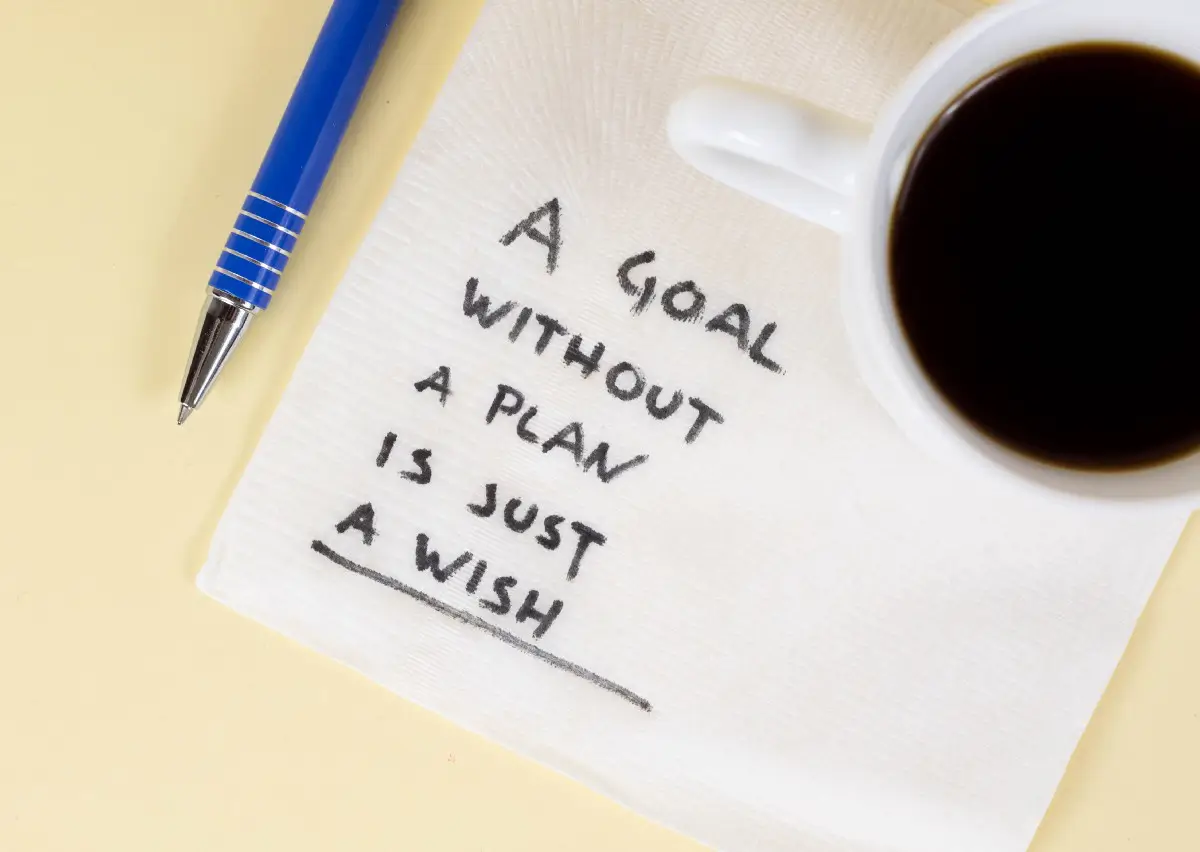 A GOAL
WITHOUT
A PLAN
IS JUST
A WISH